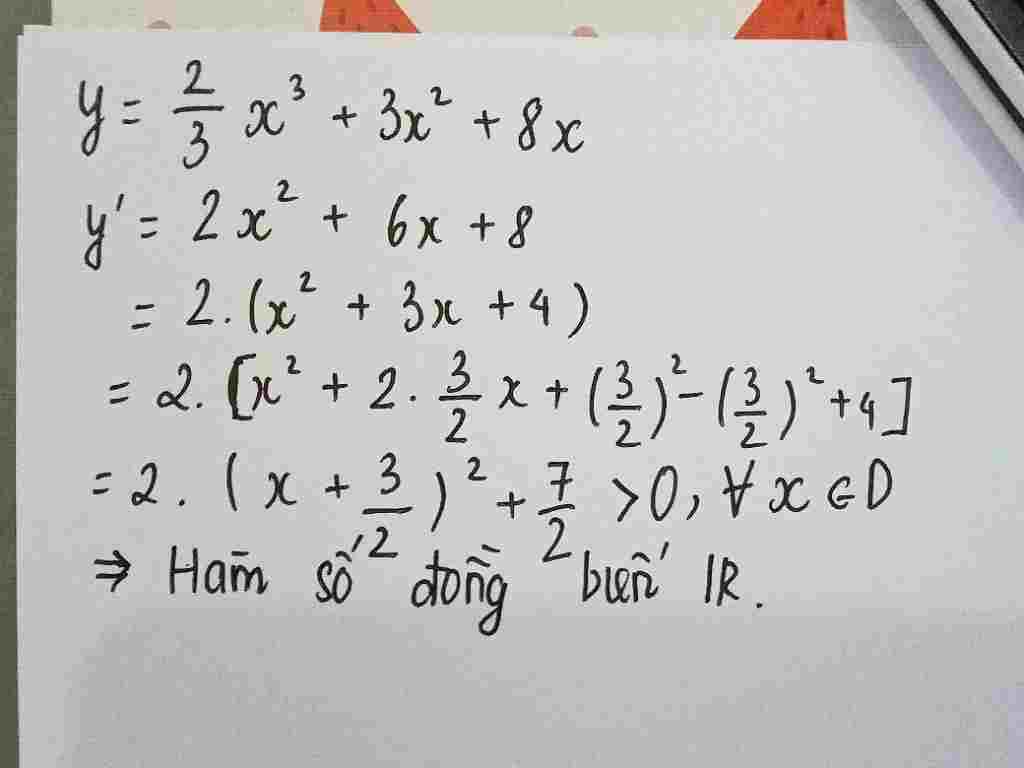 y = 2/3 x³ + 3x² + 8x
y' = 2x² + 6x + 8
= 2.(x² + 3x + 4)
= 2.[x² + 2.3/2 x + (3/2)² - (3/2)² + 4]
= 2.(x + 3/2)² + 7/2 > 0, ∀ x ∈ D
⇒ Hàm số đồng biến IR.